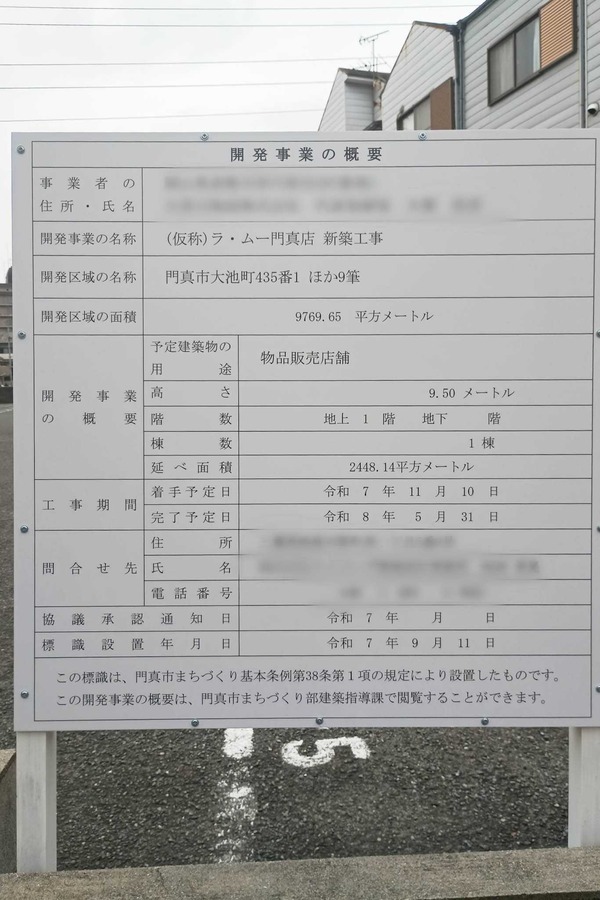 開発事業の概要
事業者の
住所・氏名
開発事業の名称 (仮称)ラ・ムー門真店 新築工事
開発区域の名称 門真市大池町435番1 ほか9筆
開発区域の面積 9769.65 平方メートル
開発事業
の概要
予定建築物の
用途 物品販売店舗
高さ 9.50 メートル
階数 地上 1 階 地下 階
棟数 1 棟
延べ面積 2448.14平方メートル
工事期間
着手予定日 令和 7 年 11 月 10 日
完了予定日 令和 8 年 5 月 31 日
問合せ先
住所
氏名
電話番号
協議承認通知日 令和 7 年 月 日
標識設置年月日 令和 7 年 9 月 11 日
この標識は、門真市まちづくり基本条例第38条第1項の規定により設置したものです。
この開発事業の概要は、門真市まちづくり部建築指導課で閲覧することができます。
15